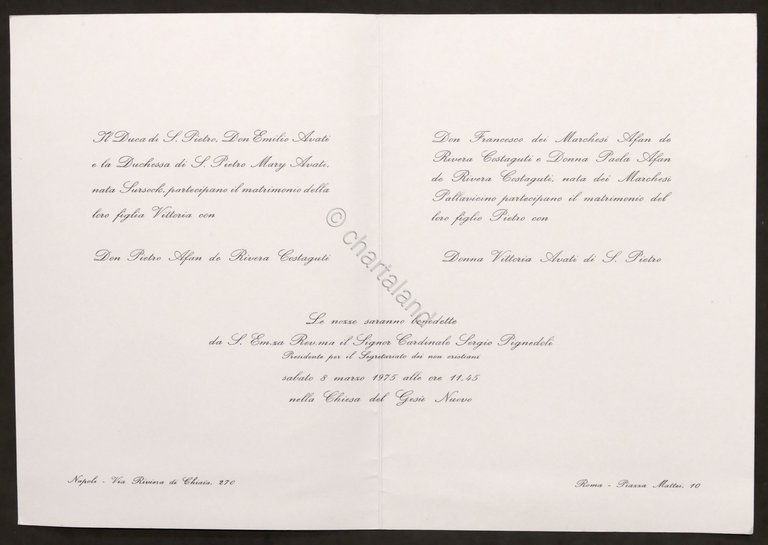 Il Duca di S. Pietro, Don Emilio Avati
e la Duchessa di S. Pietro Mary Avati,
nata Sursock, partecipano il matrimonio della
loro figlia Vittoria con
Don Pietro Afan de Rivera Costaguti
Don Francesco dei Marchesi Afan de
Rivera Costaguti e Donna Paola Afan
de Rivera Costaguti, nata dei Marchesi
Pallavicino partecipano il matrimonio del
loro figlio Pietro con
Donna Vittoria Avati di S. Pietro
Le nozze saranno benedette
da S. Em.za Rev.ma il Signor Cardinale Sergio Pignedoli
Presidente per il Segretariato dei non cristiani
sabato 8 marzo 1975 alle ore 11,45
nella Chiesa del Gesù Nuovo
Napoli - Via Riviera di Chiaia, 270
Roma - Piazza Mattei, 10
© chartaland